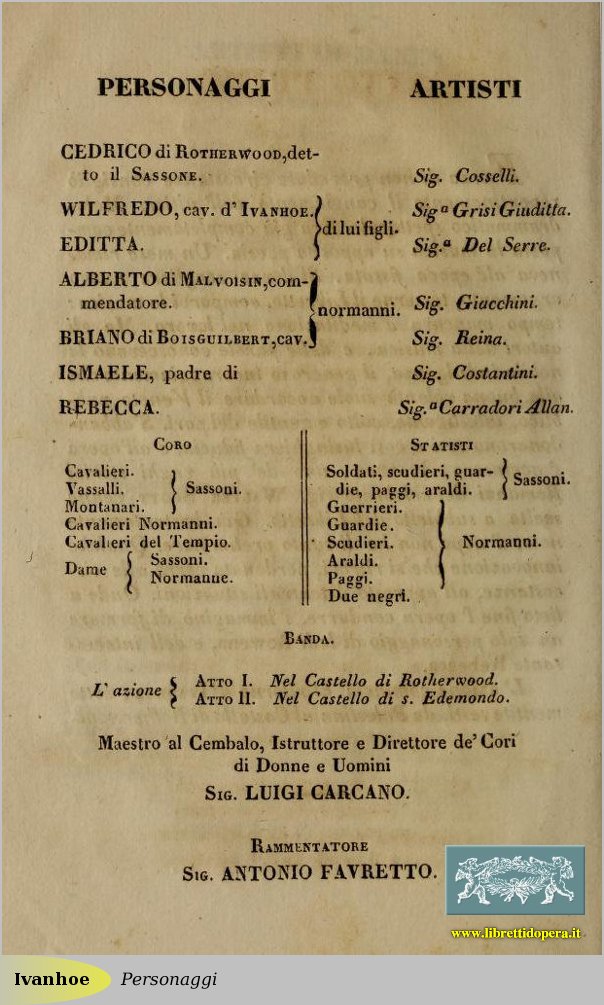 PERSONAGGI ARTISTI
CEDRICO di ROTHERWOOD, det-
to il SASSONE. Sig. Cosselli.
WILFREDO, cav. d' IVANHOE. Sigª Grisi Giuditta.
di lui figli.
EDITTA. Sig.ª Del Serre.
ALBERTO di MALVOISIN, com-
mendatore. Sig. Giacchini.
normanni.
BRIANO di BOISGUILBERT, cav. Sig. Reina.
ISMAELE, padre di Sig. Costantini.
REBECCA. Sig.ª Carradori Allan.
CORO
Cavalieri.
Vassalli. Sassoni.
Montanari.
Cavalieri Normanni.
Cavalieri del Tempio.
Dame Sassoni.
Normanne.
STATISTI
Soldati, scudieri, guar-
die, paggi, araldi. Sassoni.
Guerrieri.
Guardie.
Scudieri. Normanni.
Araldi.
Paggi.
Due negri.
BANDA.
L' azione ATTO I. Nel Castello di Rotherwood.
ATTO II. Nel Castello di s. Edemondo.
Maestro al Cembalo, Istruttore e Direttore de' Cori
di Donne e Uomini
SIG. LUIGI CARCANO.
RAMMENTATORE
SIG. ANTONIO FAVRETTO.
www.librettidopera.it
Ivanhoe Personaggi